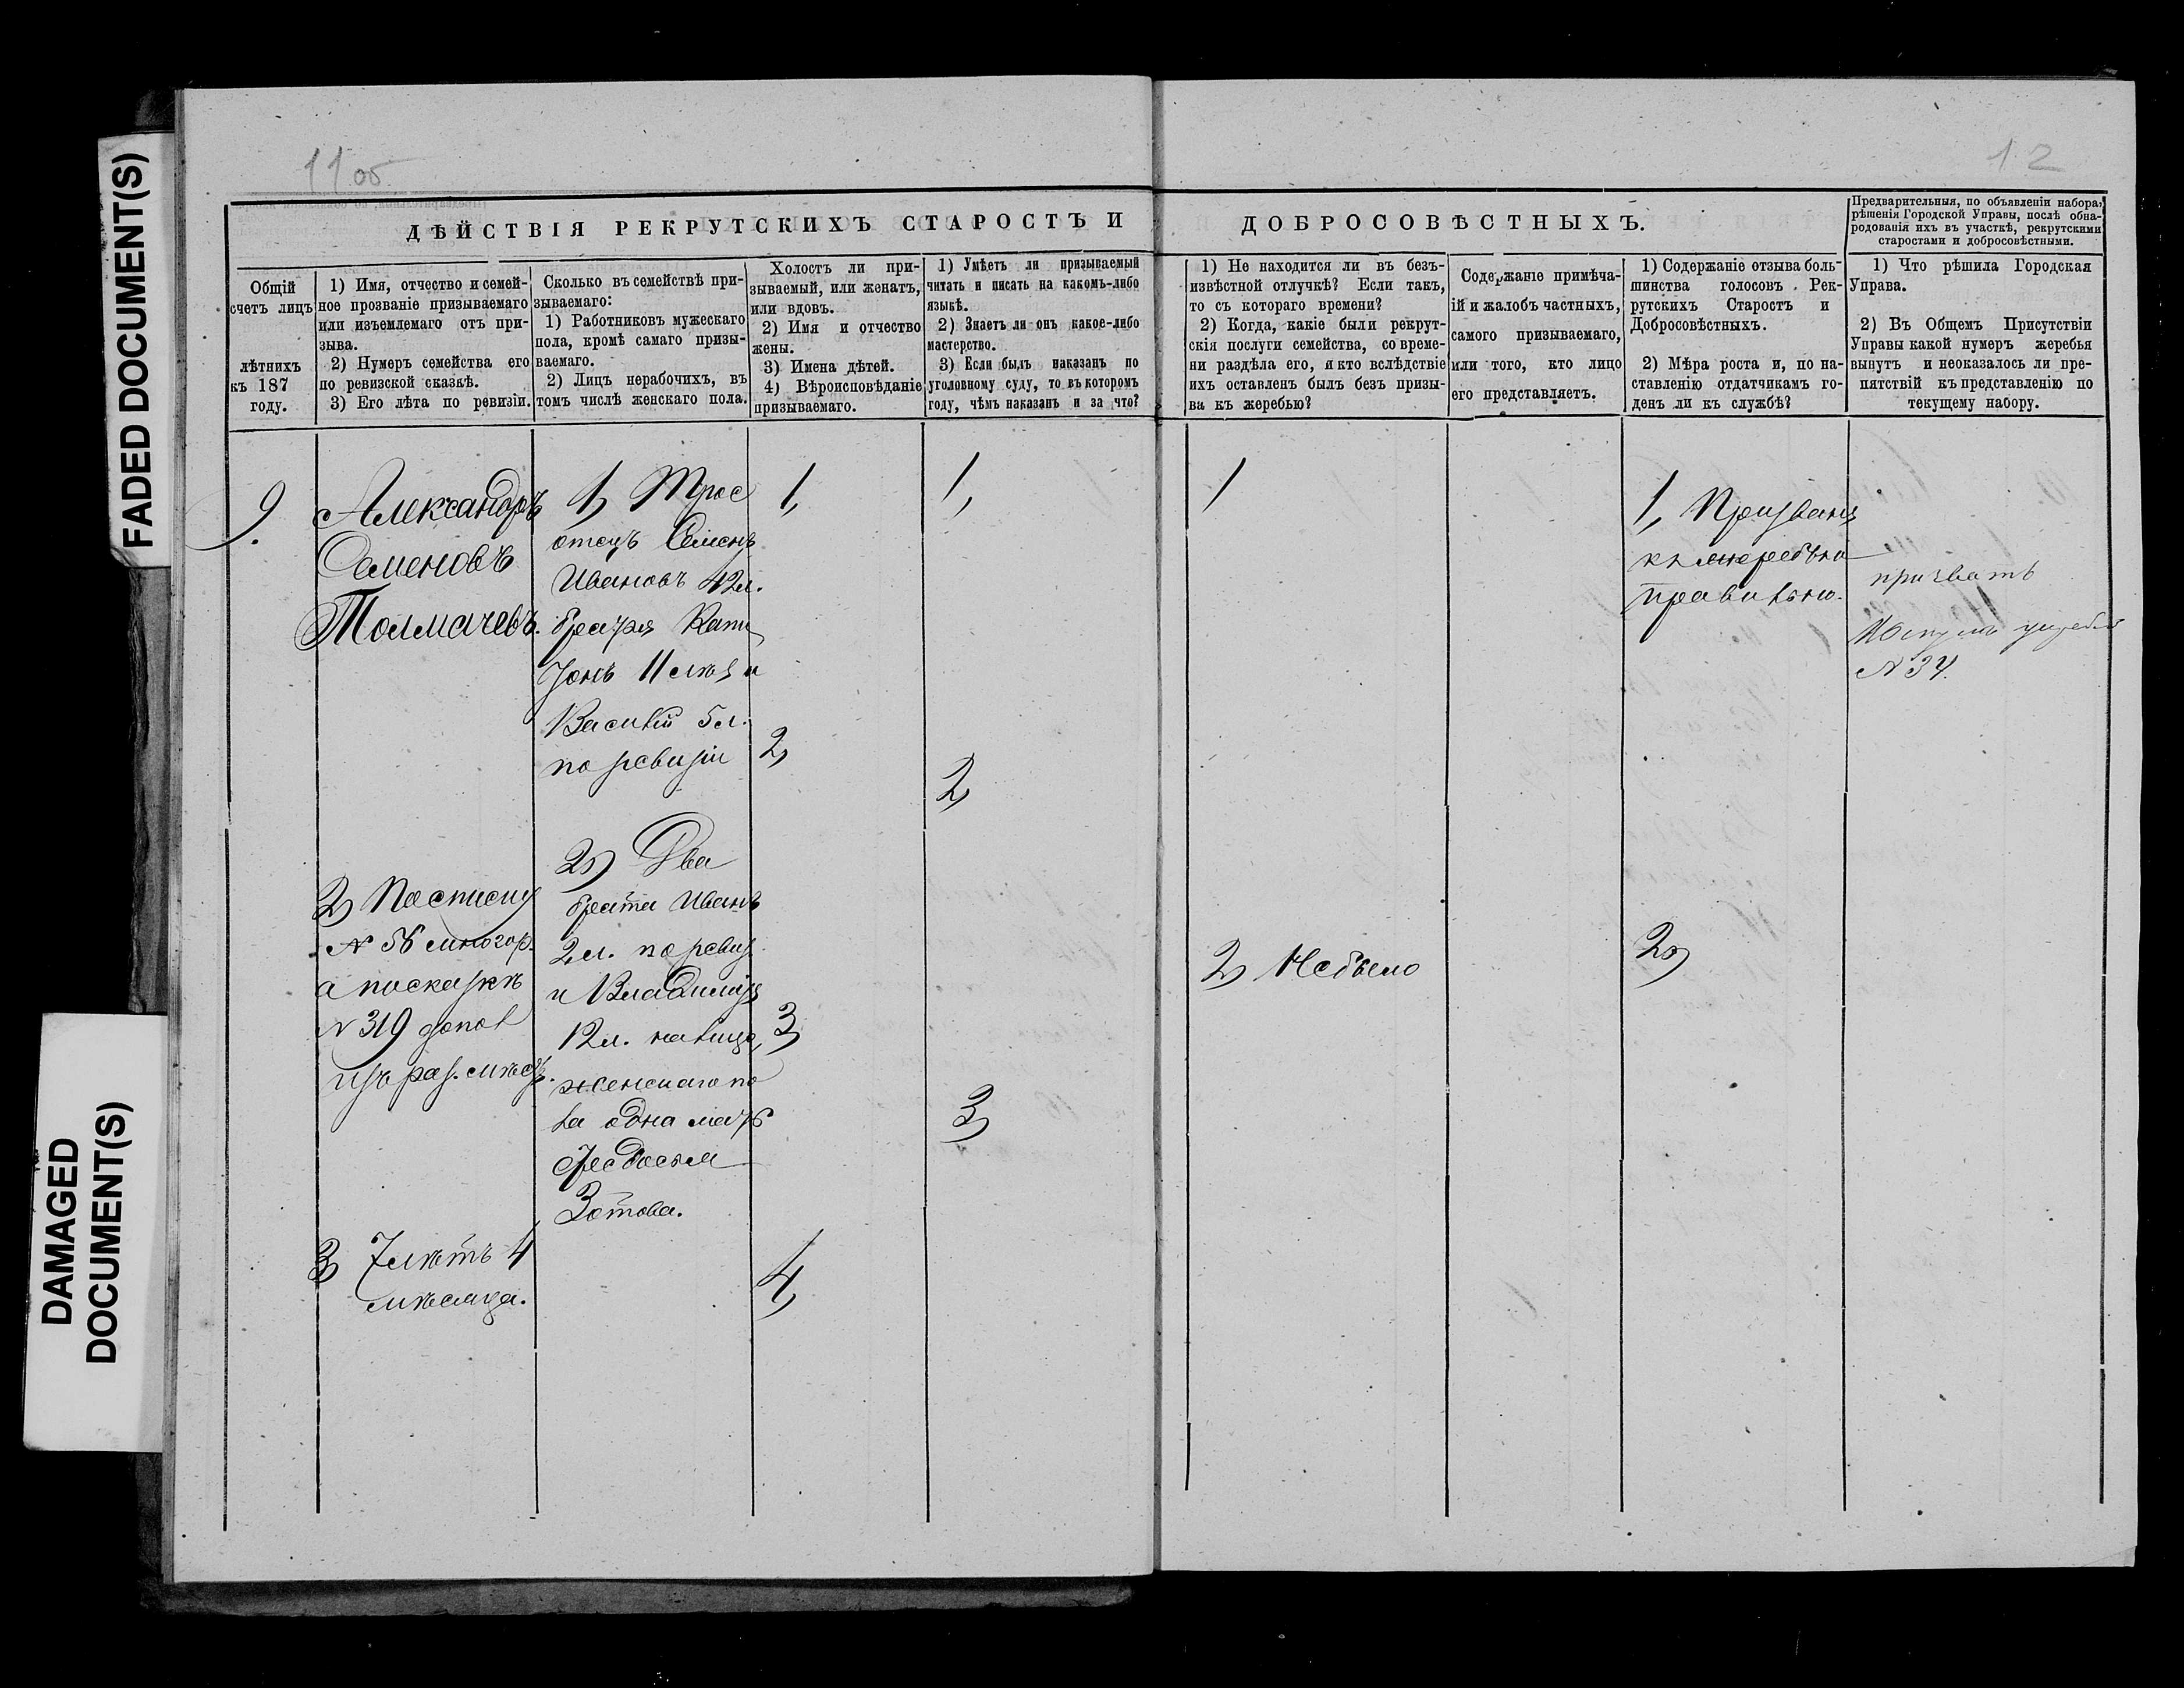 FADED DOCUMENT(S)
DAMAGED
DOCUMENT(S)
11 об
12
ДѢЙСТВІЯ РЕКРУТСКИХЪ СТАРОСТЪ И ДОБРОСОВѢСТНЫХЪ.
Предварительныя, по объявленіи набора,
рѣшенія Городской Управы, послѣ обна-
родованія ихъ въ участкѣ, рекрутскими
старостами и добросовѣстными.
Общій
счетъ лицъ
лѣтнихъ
къ 187
году.
1) Имя, отчество и семей-
ное прозваніе призываемаго
или изъемлемаго отъ при-
зыва.
2) Нумеръ семейства его
по ревизской сказкѣ.
3) Его лѣта по ревизіи.
Сколько въ семействѣ при-
зываемаго:
1) Работниковъ мужескаго
пола, кромѣ самаго призы-
ваемаго.
2) Лицъ нерабочихъ, въ
томъ числѣ женскаго пола.
Холостъ ли при-
зываемый, или женатъ,
или вдовъ.
2) Имя и отчество
жены.
3) Имена дѣтей.
4) Вѣроисповѣданіе
призываемаго.
1) Умѣетъ ли призываемый
читать и писать на какомъ-либо
языкѣ.
2) Знаетъ ли онъ какое-либо
мастерство.
3) Если былъ наказанъ по
уголовному суду, то въ которомъ
году, чѣмъ наказанъ и за что?
1) Не находится ли въ безъ-
извѣстной отлучкѣ? Если такъ,
то съ котораго времени?
2) Когда, какіе были рекрут-
скія послуги семейства, со време-
ни раздѣла его, я кто вслѣдствіе
ихъ оставленъ былъ безъ призы-
ва къ жеребью?
Содержаніе примѣча-
ій и жалобъ частныхъ,
самого призываемаго,
или того, кто лицо
его представляетъ.
1) Содержаніе отзыва боль-
шинства голосовъ Рек-
рутскихъ Старостъ и
Добросовѣстныхъ.
2) Мѣра роста и, по на-
ставленію отдатчикамъ го-
денъ ли къ службѣ?
1) Что рѣшила Городская
Управа.
2) Въ Общемъ Присутствіи
Управы какой нумеръ жеребья
вынутъ и неоказалось ли пре-
пятствій къ представленію по
текущему набору.
9.
Александръ
Семеновъ
Толмачевъ.
2) По списку
№ 56 многор.
а по сказкѣ
№ 319 допол
изъ раз. мѣст.
3) 7 лѣтъ 4
мѣсяца.
1) Трое
отецъ Семенъ
Ивановъ 42 л.
братья Капи
тонъ 11 мѣс и
Василій 5 л.
по ревизіи
2) Два
брата Иванъ
2 л. по ревиз
и Владиміръ
12 л. на лицо,
женскаго по
ла одна мать
Федосья
Зотова.
1,
2,
3,
4,
1,
2,
3,
1
2) Небыло
1, Призванъ
къ жеребью
правильно.
2)
призвать
№ 34